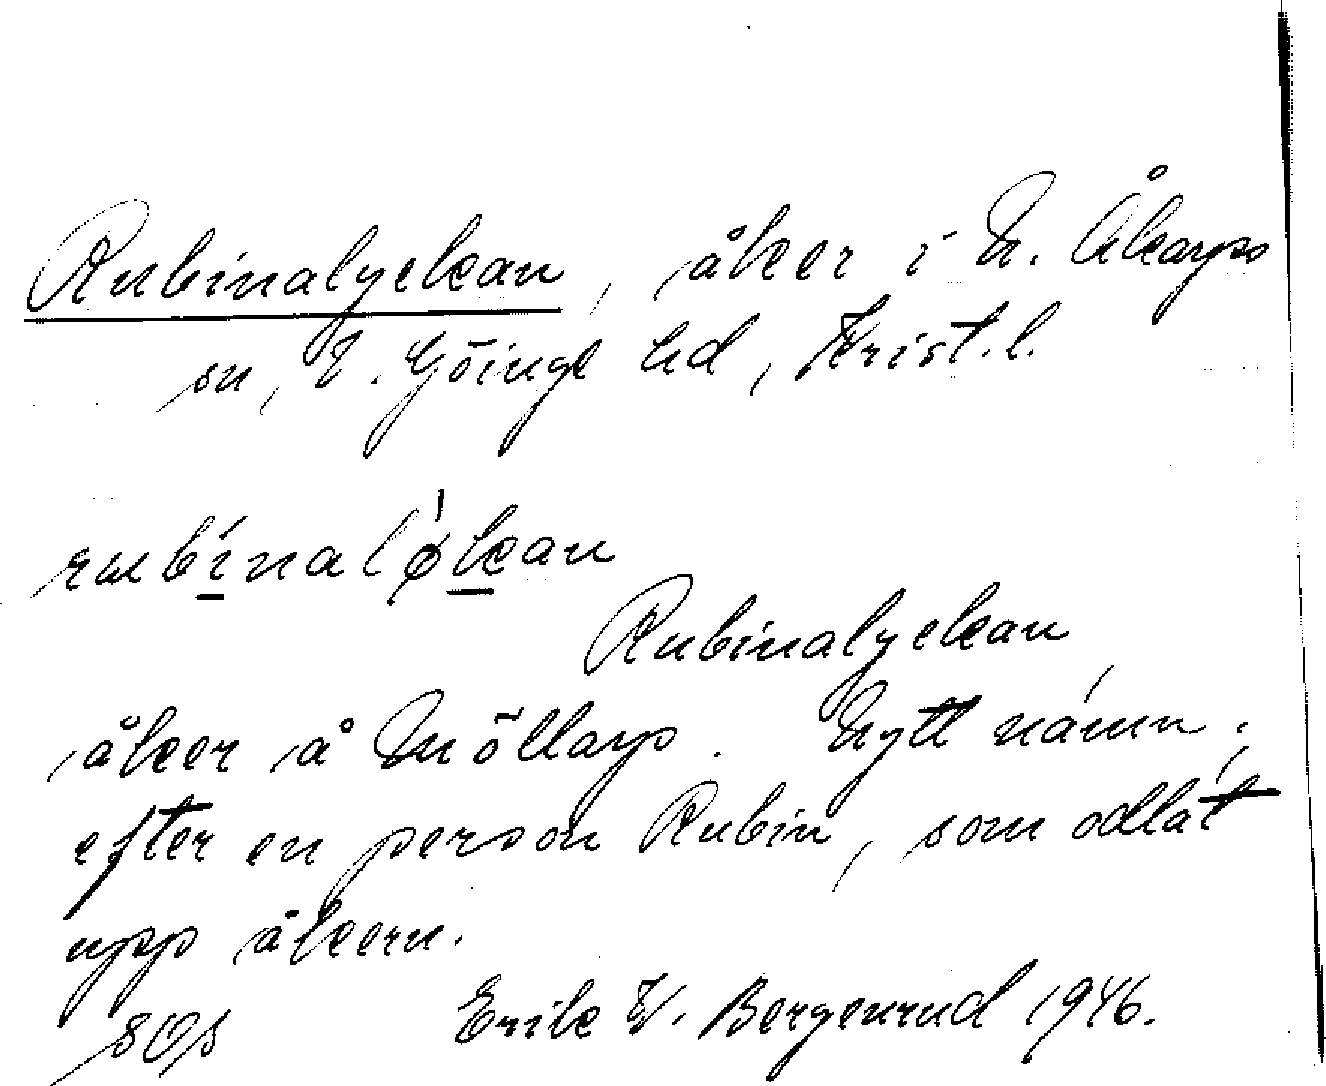 Rubinalyckan, åker i N. Åkarps
sn, V. Göinge hd, Krist. l.
rubinaløkan
Rubinalyckan
åker å Möllarp. Nytt namn,
efter en person Rubin, som odlat
upp åkern.
Erik V. Bergenrud 1946.